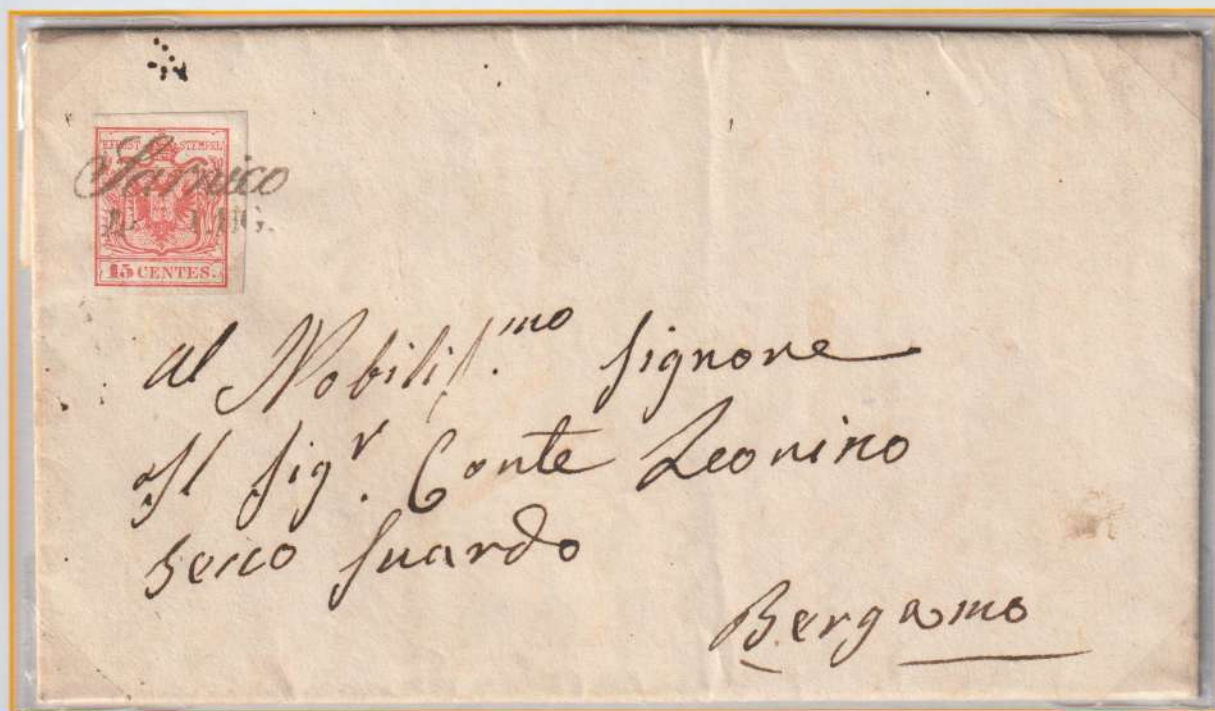 KKPOST-STEMPEL
Sarnico
LUG.
15 CENTES.
Al Nobiliss.mo Signore
Il Sigr. Conte Leonino
Secco Suardo
Bergamo